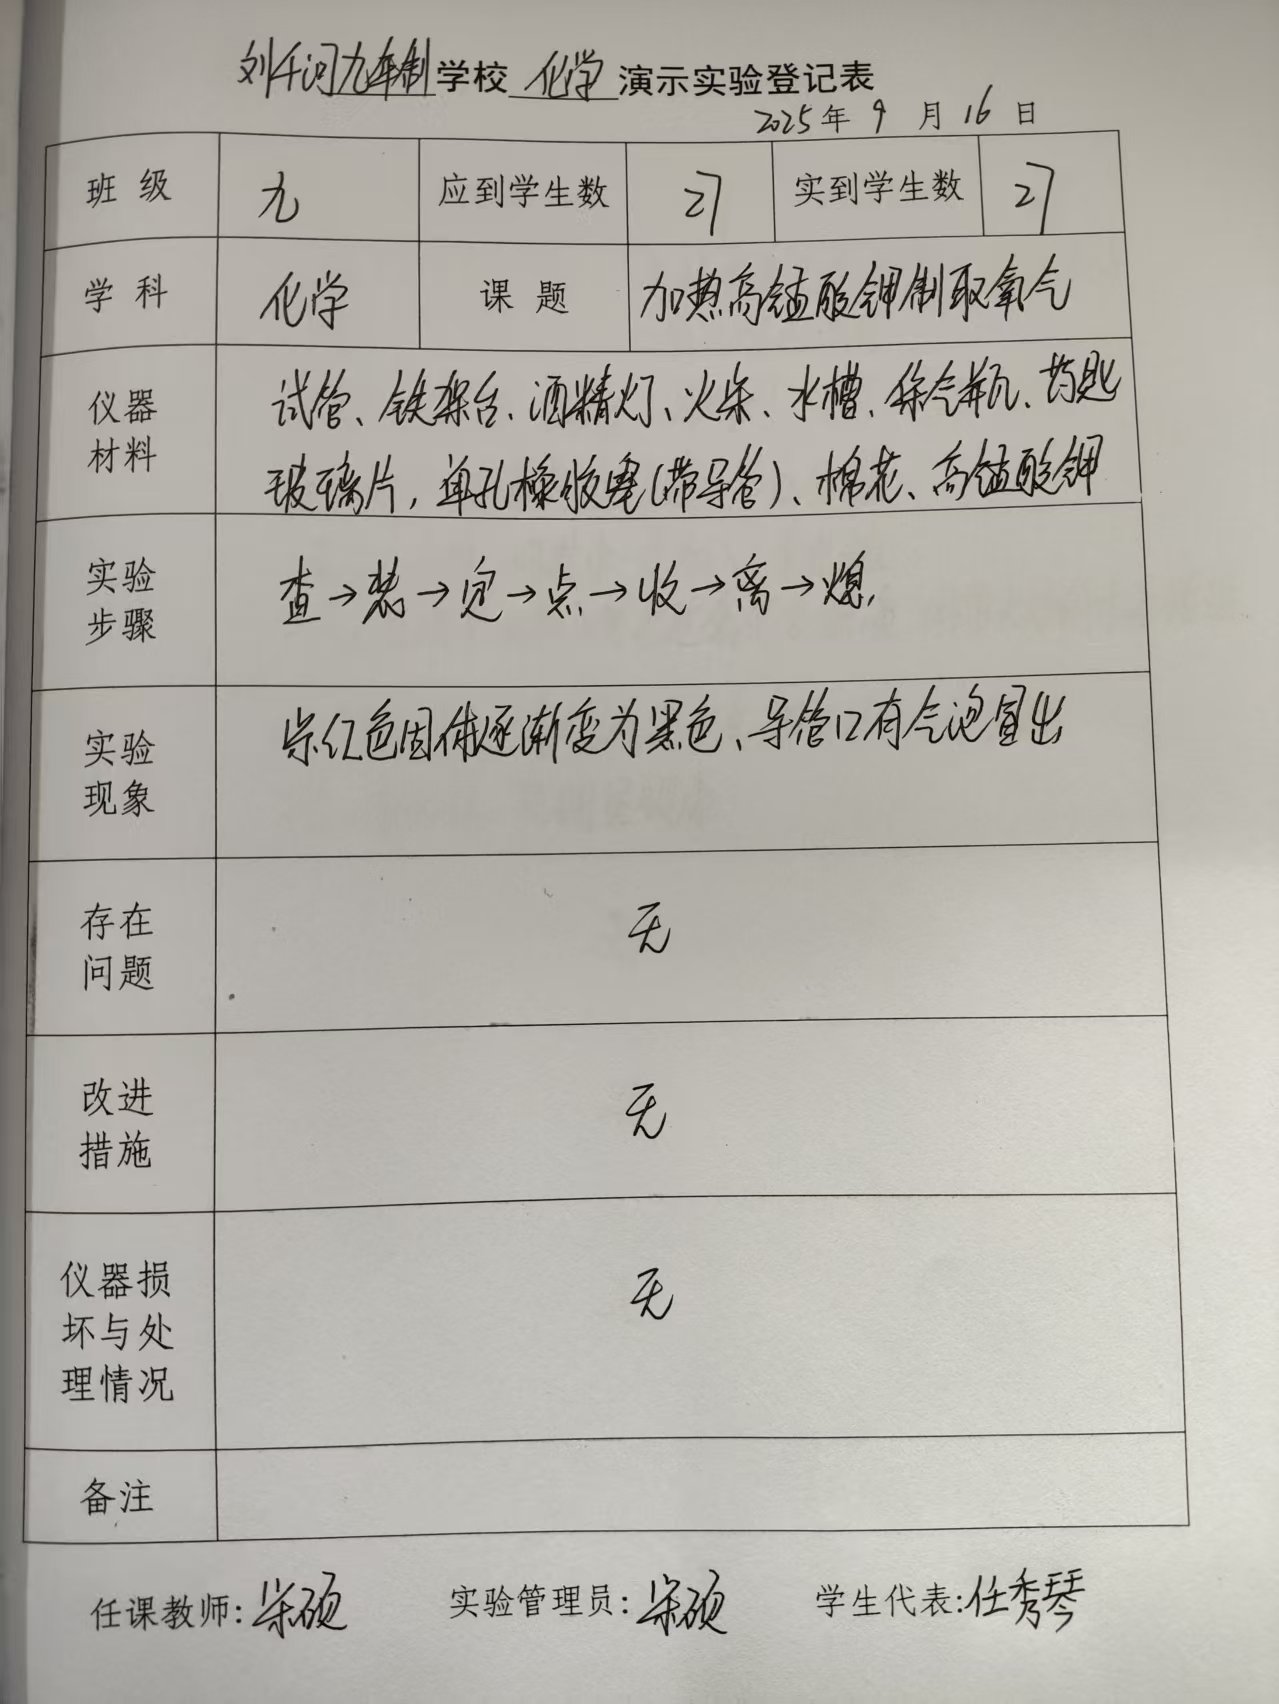 刘千河九年制学校 化学 演示实验登记表
2025年 9 月 16 日
班 级 九 应到学生数 27 实到学生数 27
学 科 化学 课 题 加热高锰酸钾制取氧气
仪器
材料
试管、铁架台、酒精灯、火柴、水槽、集气瓶、药匙
玻璃片,单孔橡胶塞(带导管)、棉花、高锰酸钾
实验
步骤
查→装→定→点→收→离→熄.
实验
现象
紫红色固体逐渐变为黑色、导管口有气泡冒出
存在
问题
无
改进
措施
无
仪器损
坏与处
理情况
无
备注
任课教师:宋硕 实验管理员:宋硕 学生代表:任秀琴